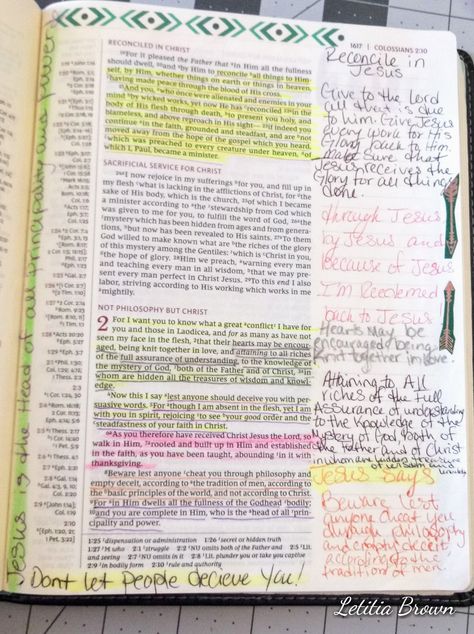 1617 | COLOSSIANS 2:10
RECONCILED IN CHRIST
19For it pleased the Father that in Him all the fullness
should dwell, 20and by Him to reconcile all things to Him-
self, by Him, whether things on earth or things in heaven,
having made peace through the blood of His cross.
21And you, who once were alienated and enemies in your
mind by wicked works, yet now He has reconciled 22in the
body of His flesh through death, to present you holy, and
blameless, and above reproach in His sight— 23if indeed you
continue in the faith, grounded and steadfast, and are not
moved away from the hope of the gospel which you heard,
which was preached to every creature under heaven, of
which I, Paul, became a minister.
SACRIFICIAL SERVICE FOR CHRIST
24I now rejoice in my sufferings for you, and fill up in
my flesh what is lacking in the afflictions of Christ, for the
sake of His body, which is the church, 25of which I became
a minister according to the stewardship from God which
was given to me for you, to fulfill the word of God, 26the
mystery which has been hidden from ages and from genera-
tions, but now has been revealed to His saints. 27To them
God willed to make known what are the riches of the glory
of this mystery among the Gentiles: which is Christ in you,
the hope of glory. 28Him we preach, warning every man
and teaching every man in all wisdom, that we may pre-
sent every man perfect in Christ Jesus. 29To this end I also
labor, striving according to His working which works in me
mightily.
NOT PHILOSOPHY BUT CHRIST
2 For I want you to know what a great conflict I have for
you and those in Laodicea, and for as many as have not
seen my face in the flesh, 2that their hearts may be encour-
aged, being knit together in love, and attaining to all riches
of the full assurance of understanding, to the knowledge of
the mystery of God, both of the Father and of Christ, 3in
whom are hidden all the treasures of wisdom and knowl-
edge.
4Now this I say lest anyone should deceive you with per-
suasive words. 5For though I am absent in the flesh, yet I am
with you in spirit, rejoicing to see your good order and the
steadfastness of your faith in Christ.
6As you therefore have received Christ Jesus the Lord, so
walk in Him, 7rooted and built up in Him and established
in the faith, as you have been taught, abounding in it with
thanksgiving.
8Beware lest anyone cheat you through philosophy and
empty deceit, according to the tradition of men, according
to the basic principles of the world, and not according to Christ.
9For in Him dwells all the fullness of the Godhead bodily;
10and you are complete in Him, who is the head of all prin-
cipality and power.
1:25 dispensation or administration 1:26 secret or hidden truth
1:27 M who 2:1 struggle 2:2 NU omits both of the Father and
2:7 NU omits in it 2:8 Lit. plunder you or take you captive
2:9 in bodily form 2:10 rule and authority
Reconcile in
Jesus
Give to the lord
all that is due
to him. Give Jesus
every work for His
Glory back to Him
make sure that
Jesus receives the
Glory for all things
done.
through Jesus
by Jesus and
because of Jesus
I'm Redeemed
back to Jesus
Hearts may be
encouraged being
knit together in love.
Attaining to All
riches of the Full
Assurance of understanding
to the Knowledge of the
Mystery of God, both of
the Father and of Christ
in whom are hidden treasures
of wisdom and
Jesus Says
Beware lest
anyone cheat you
through philosophy
and empty deceit
according to the
tradition of men.
Jesus is the Head of all principality and power
Dont let People decieve You!
Letitia Brown